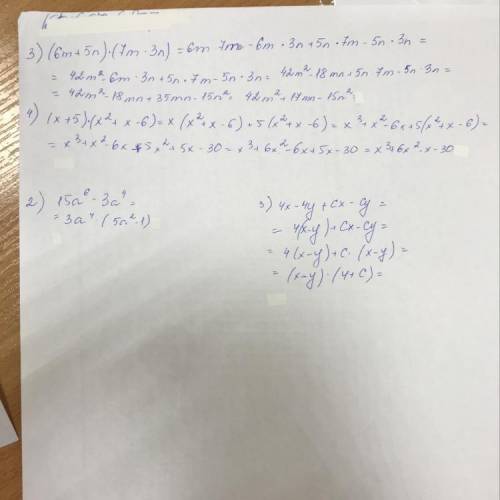 3) (6m + 5n) · (7m - 3n) = 6m · 7m - 6m · 3n + 5n · 7m - 5n · 3n =
= 42m² - 6m · 3n + 5n · 7m - 5n · 3n = 42m² - 18mn + 5n · 7m - 5n · 3n =
= 42m² - 18mn + 35mn - 15n² = 42m² + 17mn - 15n²;
4) (x + 5) · (x² + x - 6) = x (x² + x - 6) + 5 (x² + x - 6) = x³ + x² - 6x + 5(x² + x - 6) =
= x³ + x² - 6x + 5x² + 5x - 30 = x³ + 6x² - 6x + 5x - 30 = x³ + 6x² - x - 30
2) 15a⁶ - 3a⁴ =
= 3a⁴ · (5a² - 1)
3) 4x - 4y + cx - cy =
= 4(x-y) + cx - cy =
= 4(x-y) + c · (x-y) =
= (x-y) · (4 + c) =